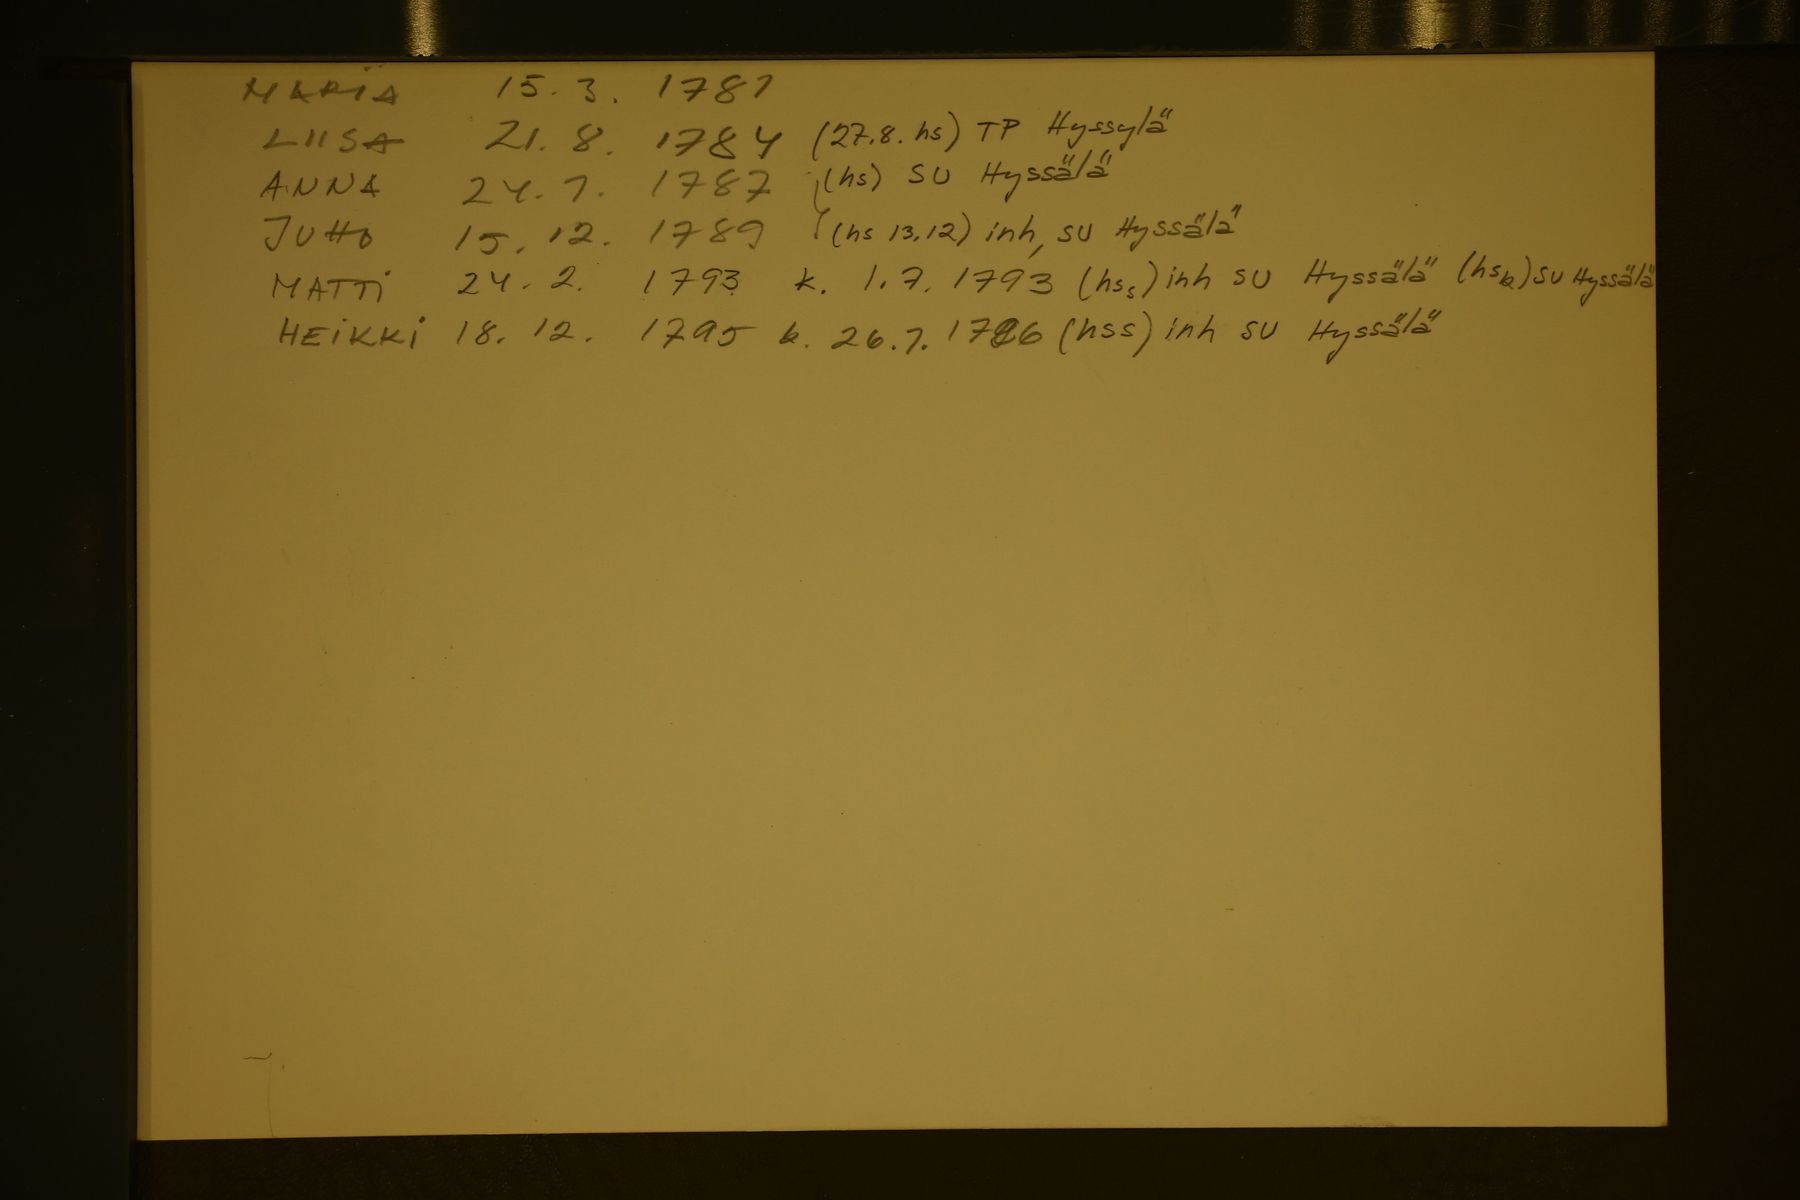 MARIA 15.3. 1781
LIISA 21.8. 1784 (27.8. hs) TP Hyssylä
ANNA 24.7. 1787 (hs) SU Hyssälä
JUHO 15.12. 1789 (hs 13.12) inh, SU Hyssälä
MATTI 24.2. 1793 k. 1.7. 1793 (hss) inh SU Hyssälä (hsk) SU Hyssälä
HEIKKI 18.12. 1795 k. 26.7. 1796 (hss) inh SU Hyssälä